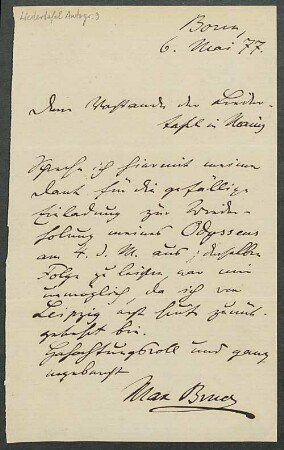 Liedertafel Autogr. 9
Bonn,
6. Mai 77.
Dem Vorstande der Lieder-
tafel in Mainz
Spreche ich hiermit meinen
Dank für die gefällige
Einladung zur Wieder-
holung meines Odysseus
am 4. d. M. aus; derselben
Folge zu leisten, war mir
unmöglich, da ich von
Leipzig erst heute zurück-
gekehrt bin.
Hochachtungsvoll und ganz
ergebenst
Max Bruch